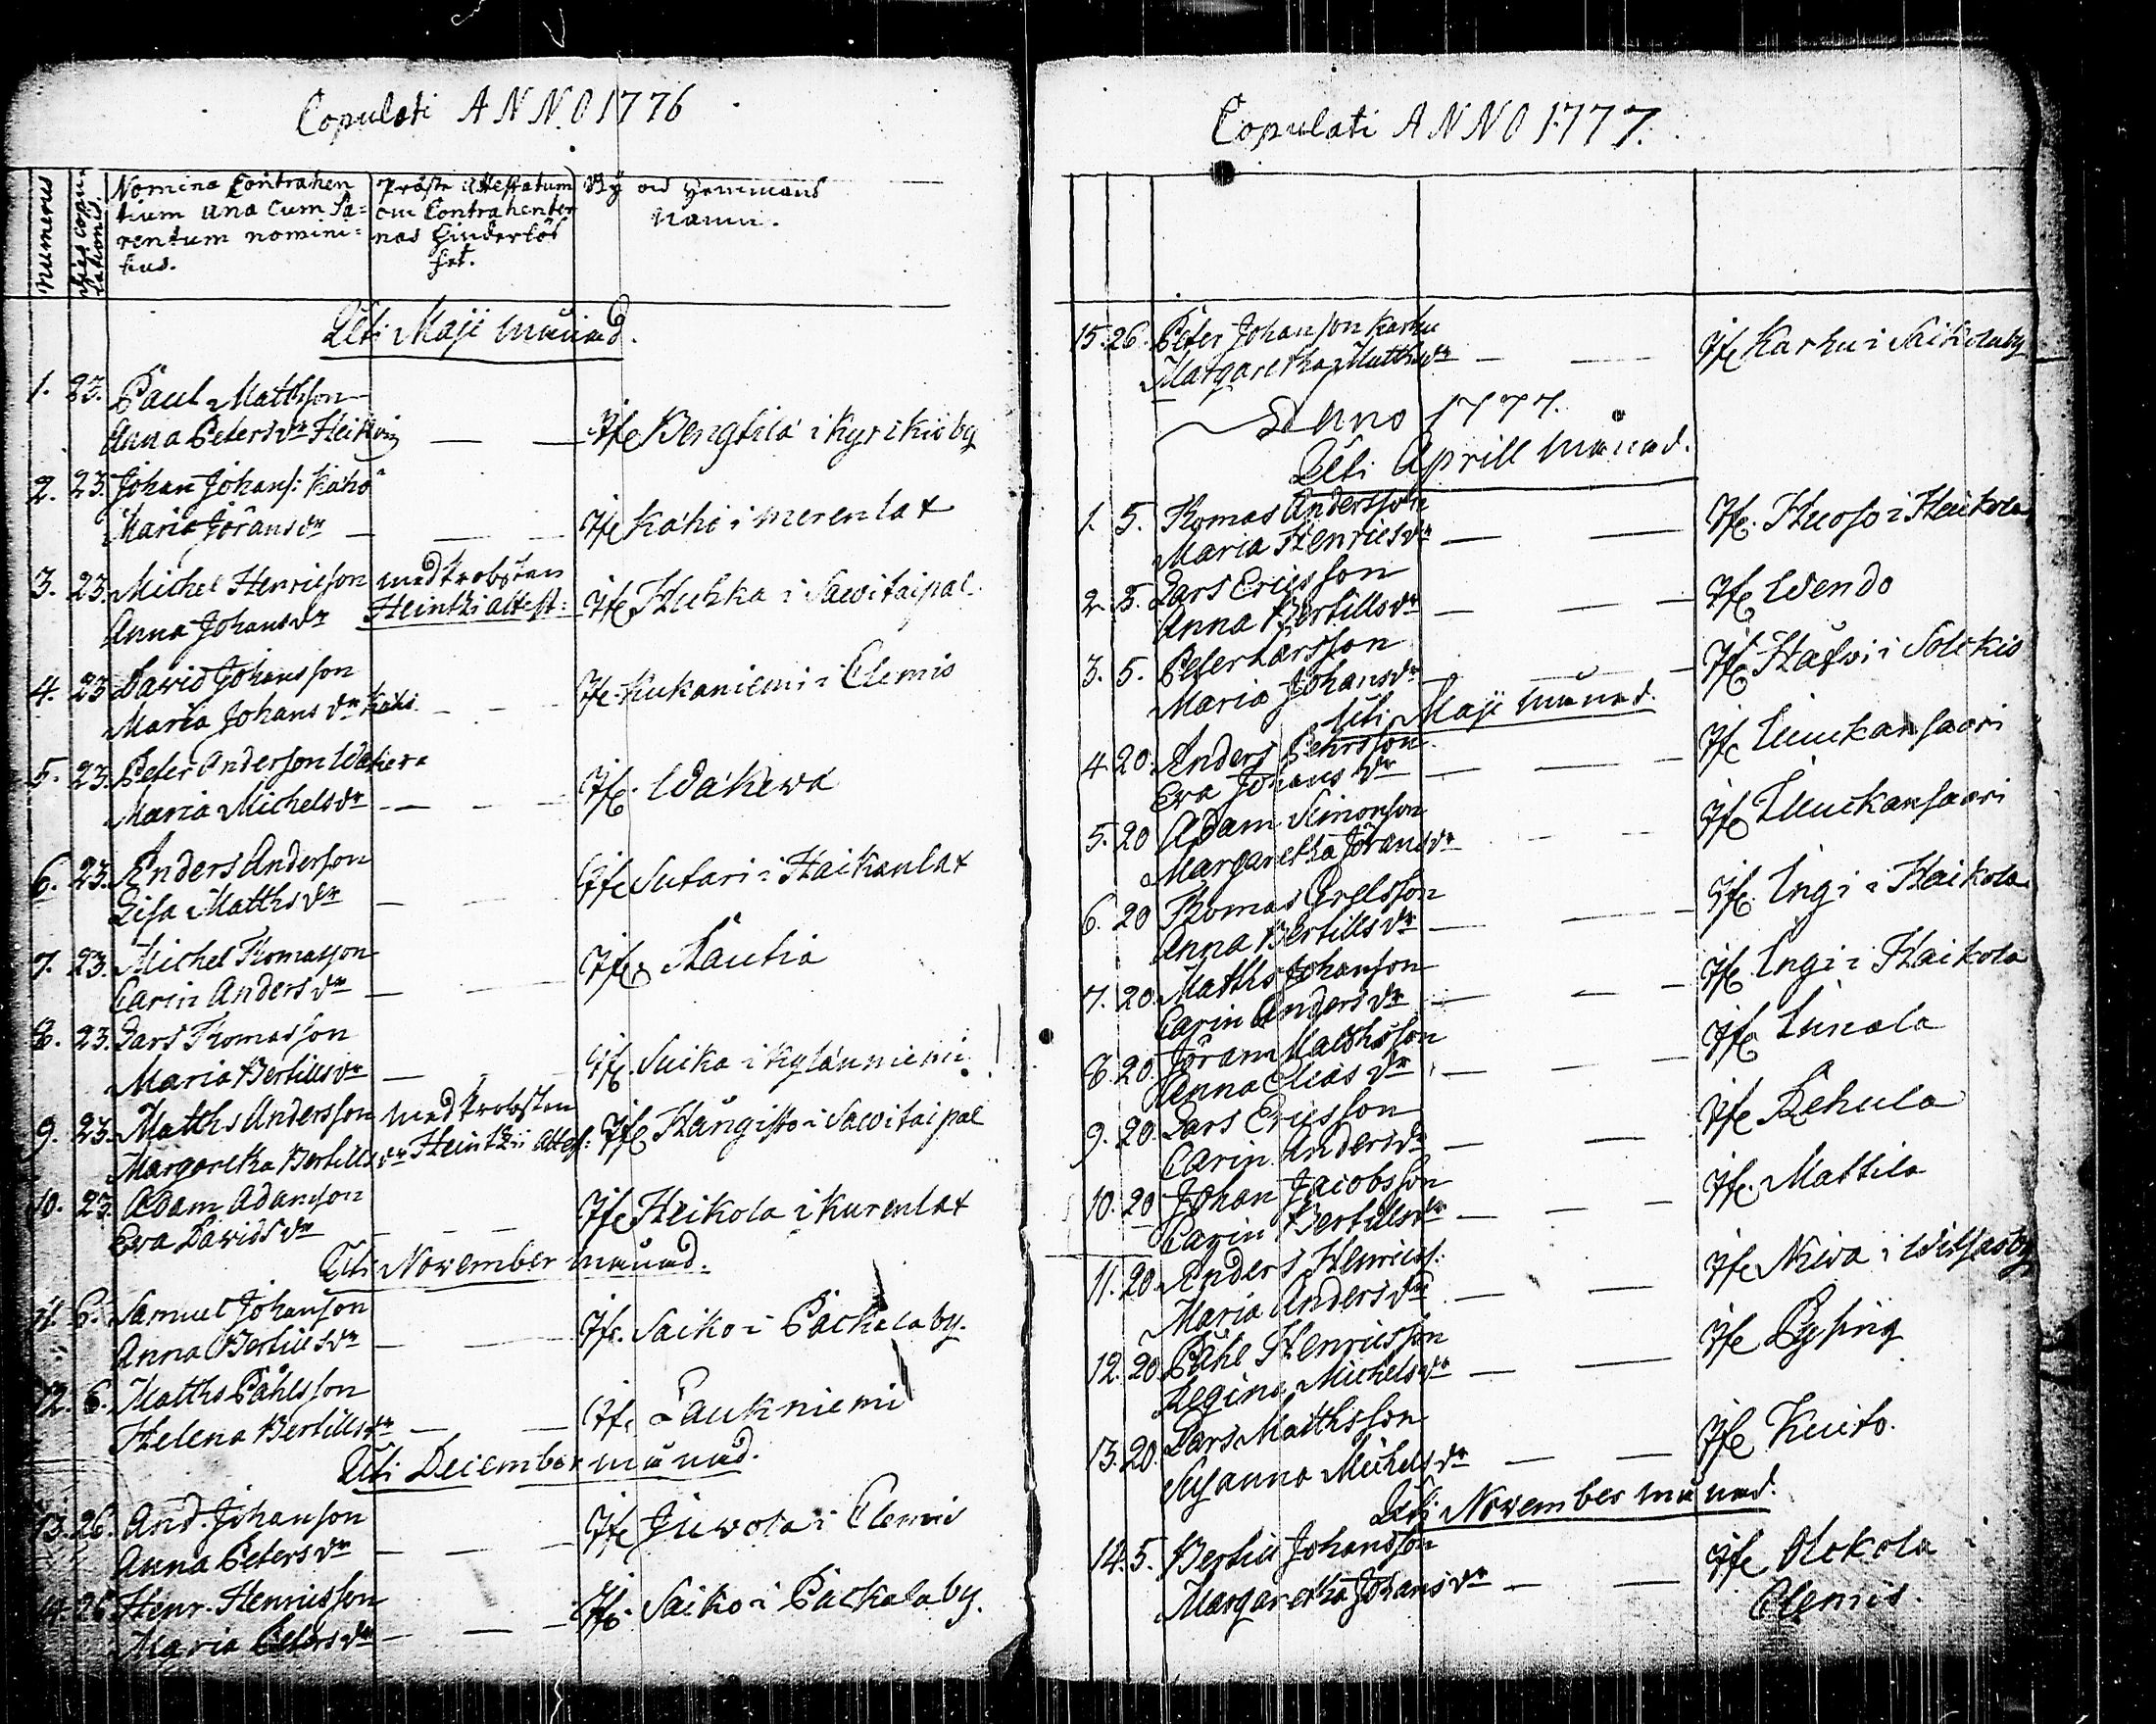 Copulati ANNO 1776
numerus
Dies copulationis.
Nomina Contrahen
tium una cum Pa=
rentum nomini=
bus.
Präste Attestatum
om Contrahenter
nas hinderlös
het.
By och Hemmans
namn.
Uti Maji månad.
1. 23. Paul Mathsson
Anna Petersdr Heikoin — — Ifr Bengtilä i Kyrikiö by
2. 23. Johan Johans: Kähö
Maria Jöransdr — — Ifr Kähö i Merenlax
3. 23. Michel Henricson med Probsten
Anna Johansdr Heintzii attest: Ifr Huhka i Sawitaipal
4. 23 David Johansson
Maria Johansdr — — Ifr Kukaniemi i Clemis
5. 23. Peter Anderson
Maria Michelsdr — — Ifr Wäkewä
6. 23. Anders Anderson
Lisa Matthsdr — — Ifr Sutari i Haikanlax
7. 23. Michel Thomasson
Carin Andersdr — — Ifr Rautia
8. 23. Lars Thomasson
Maria Bertilsdr — — Ifr Suika i Kyläniemi
9. 23. Matths Andersson med Probsten
Margaretha Bertillsdr Heintzii attest: Ifr Hangisto i Sawitaipal
10. 23. Adam Adamson
Eva Davidsdr — — Ifr Heikola i Kurenlax
Uti November månad.
11. 6. Samuel Johanson
Anna Bertilsdr — — Ifr. Saiko i Päckälä by.
12. 6. Matths Påhlsson
Helena Bertillsdr — — Ifr Laukniemi
Uti December månad.
13. 26. And. Johanson
Anna Petersdr — — Ifr Juvola i Clemis
14. 26. Henr. Henricsson
Maria Petersdr — — Ifr. Saiko i Päckälä by.
Copulati ANNO 1777.
15. 26. Peter Johanson Karhu
Margaretha Matthsdr — — Ifr Karhu i Saikola by
Anno 1777.
Uti Aprill månad.
1. 5. Thomas Andersson
Maria Henricsdr — — Ifr. Huoso i Heikola
2. 5. Lars Ericsson
Anna Bertillsdr — — Ifr Wendo
3. 5. Peter Larsson
Maria Johansdr — — Ifr i Solckis
Uti Maji månad.
4. 20. Anders Pehrsson
Eva Johansdr — — Ifr Liuckansaari
5. 20 Adam Simonson
Margaretha Jöransdr — — Ifr Liuckansaari
6. 20 Thomas Grelsson
Anna Bertillsdr — — Ifr. Ingi i Haikola
7. 20. Matths Johanson
Carin Andersdr — — Ifr Ingi i Haikola
8. 20. Jöran Matthsson
Anna Eliasdr — — Ifr Linala
9. 20. Lars Ericsson
Carin Andersdr — — Ifr Rehula
10. 20 Johan Jacobsson
Carin Bertillsdr — — Ifr. Mattila
11. 20 Anders Henricss:
Maria Andersdr — — Ifr Niva i
12. 20. Påhl Henricsson
Regina Michelsdr — — Ifr Pysing
13. 20. Lars Matthsson
Susanna Michelsdr — — Ifr Kuito.
Uti November månad.
14. 5. Bertill Johansson
Margaretha Johansdr — — Ifr Olckola i
Clemis.